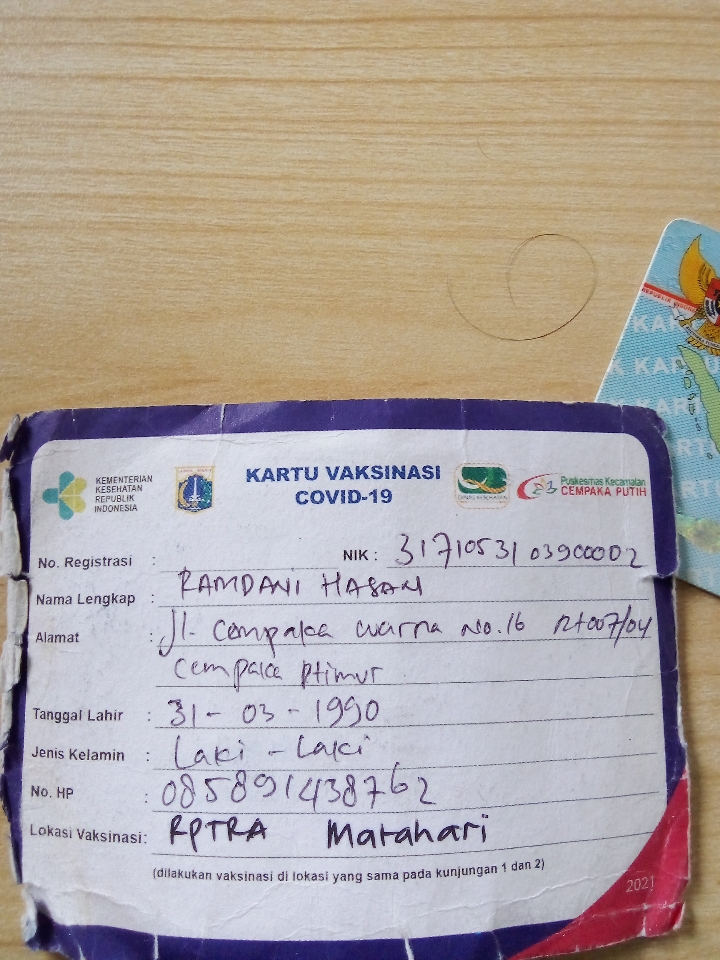 KEMENTERIAN
KESEHATAN
REPUBLIK
INDONESIA
KARTU VAKSINASI
COVID-19
Puskesmas Kecamatan
CEMPAKA PUTIH
No. Registrasi :
NIK : 3171053103900002
Nama Lengkap : RAMDANI HASAN
Alamat : Jl. Cempaka warna No.16 Rt007/04
Cempaka Ptimur
Tanggal Lahir : 31-03-1990
Jenis Kelamin : Laki-Laki
No. HP : 085891438762
Lokasi Vaksinasi: RPTRA Matahari
(dilakukan vaksinasi di lokasi yang sama pada kunjungan 1 dan 2)
2021